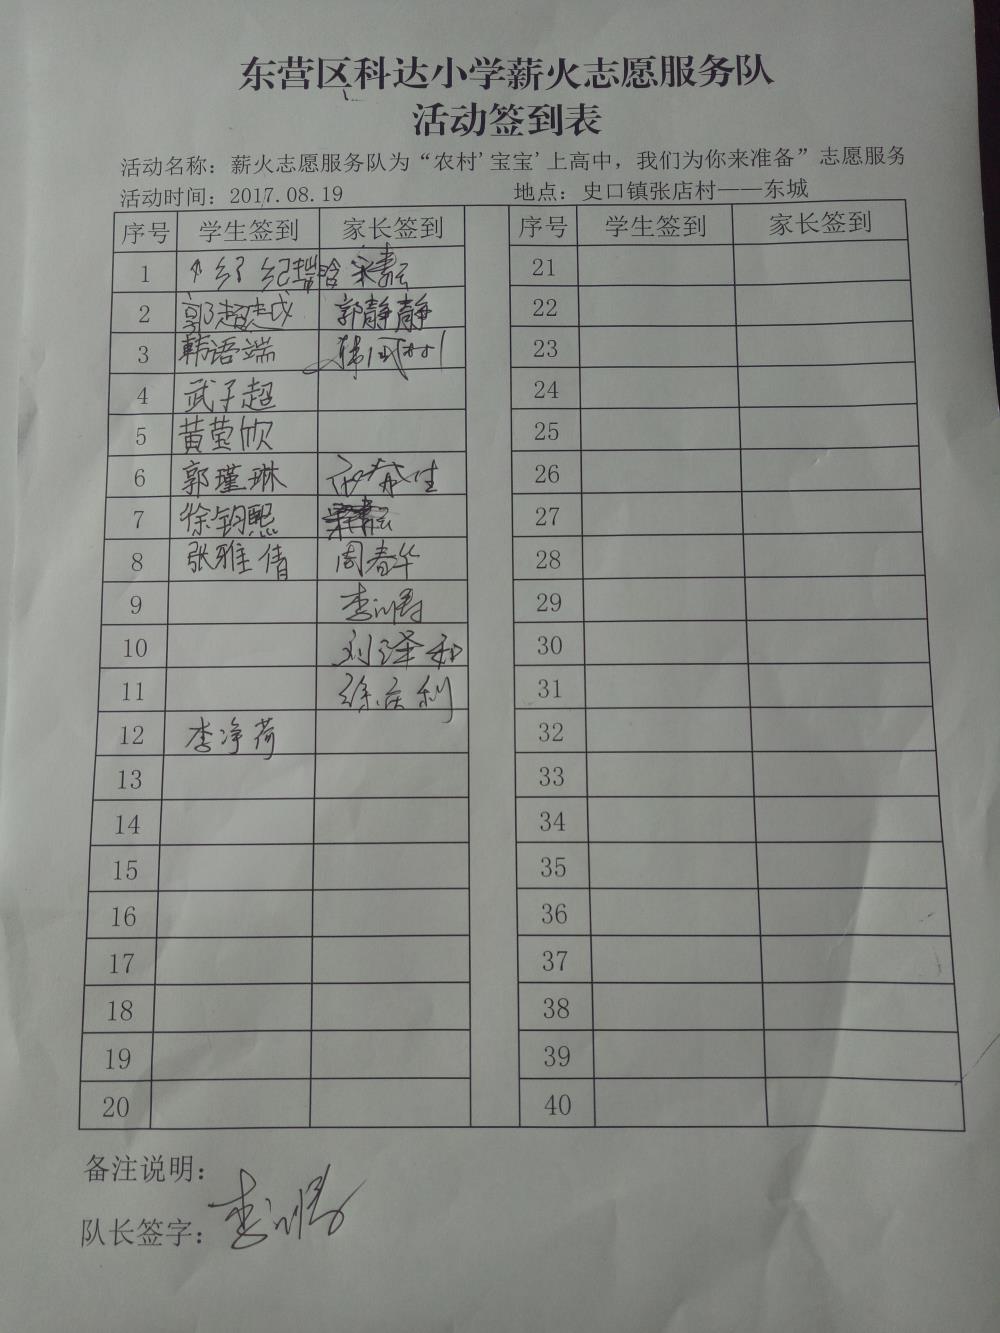 东营区科达小学薪火志愿服务队
活动签到表
活动名称：薪火志愿服务队为“农村'宝宝'上高中，我们为你来准备”志愿服务
活动时间：2017.08.19 地点：史口镇张店村——东城
序号 学生签到 家长签到 序号 学生签到 家长签到
1 21
2 郭静静 22
3 韩语端 23
4 武子超 24
5 黄莹欣 25
6 郭瑾琳 26
7 徐钧熙 27
8 张雅倩 周春华 28
9 29
10 刘泽和 30
11 徐庆利 31
12 李净荷 32
13 33
14 34
15 35
16 36
17 37
18 38
19 39
20 40
备注说明：
队长签字：